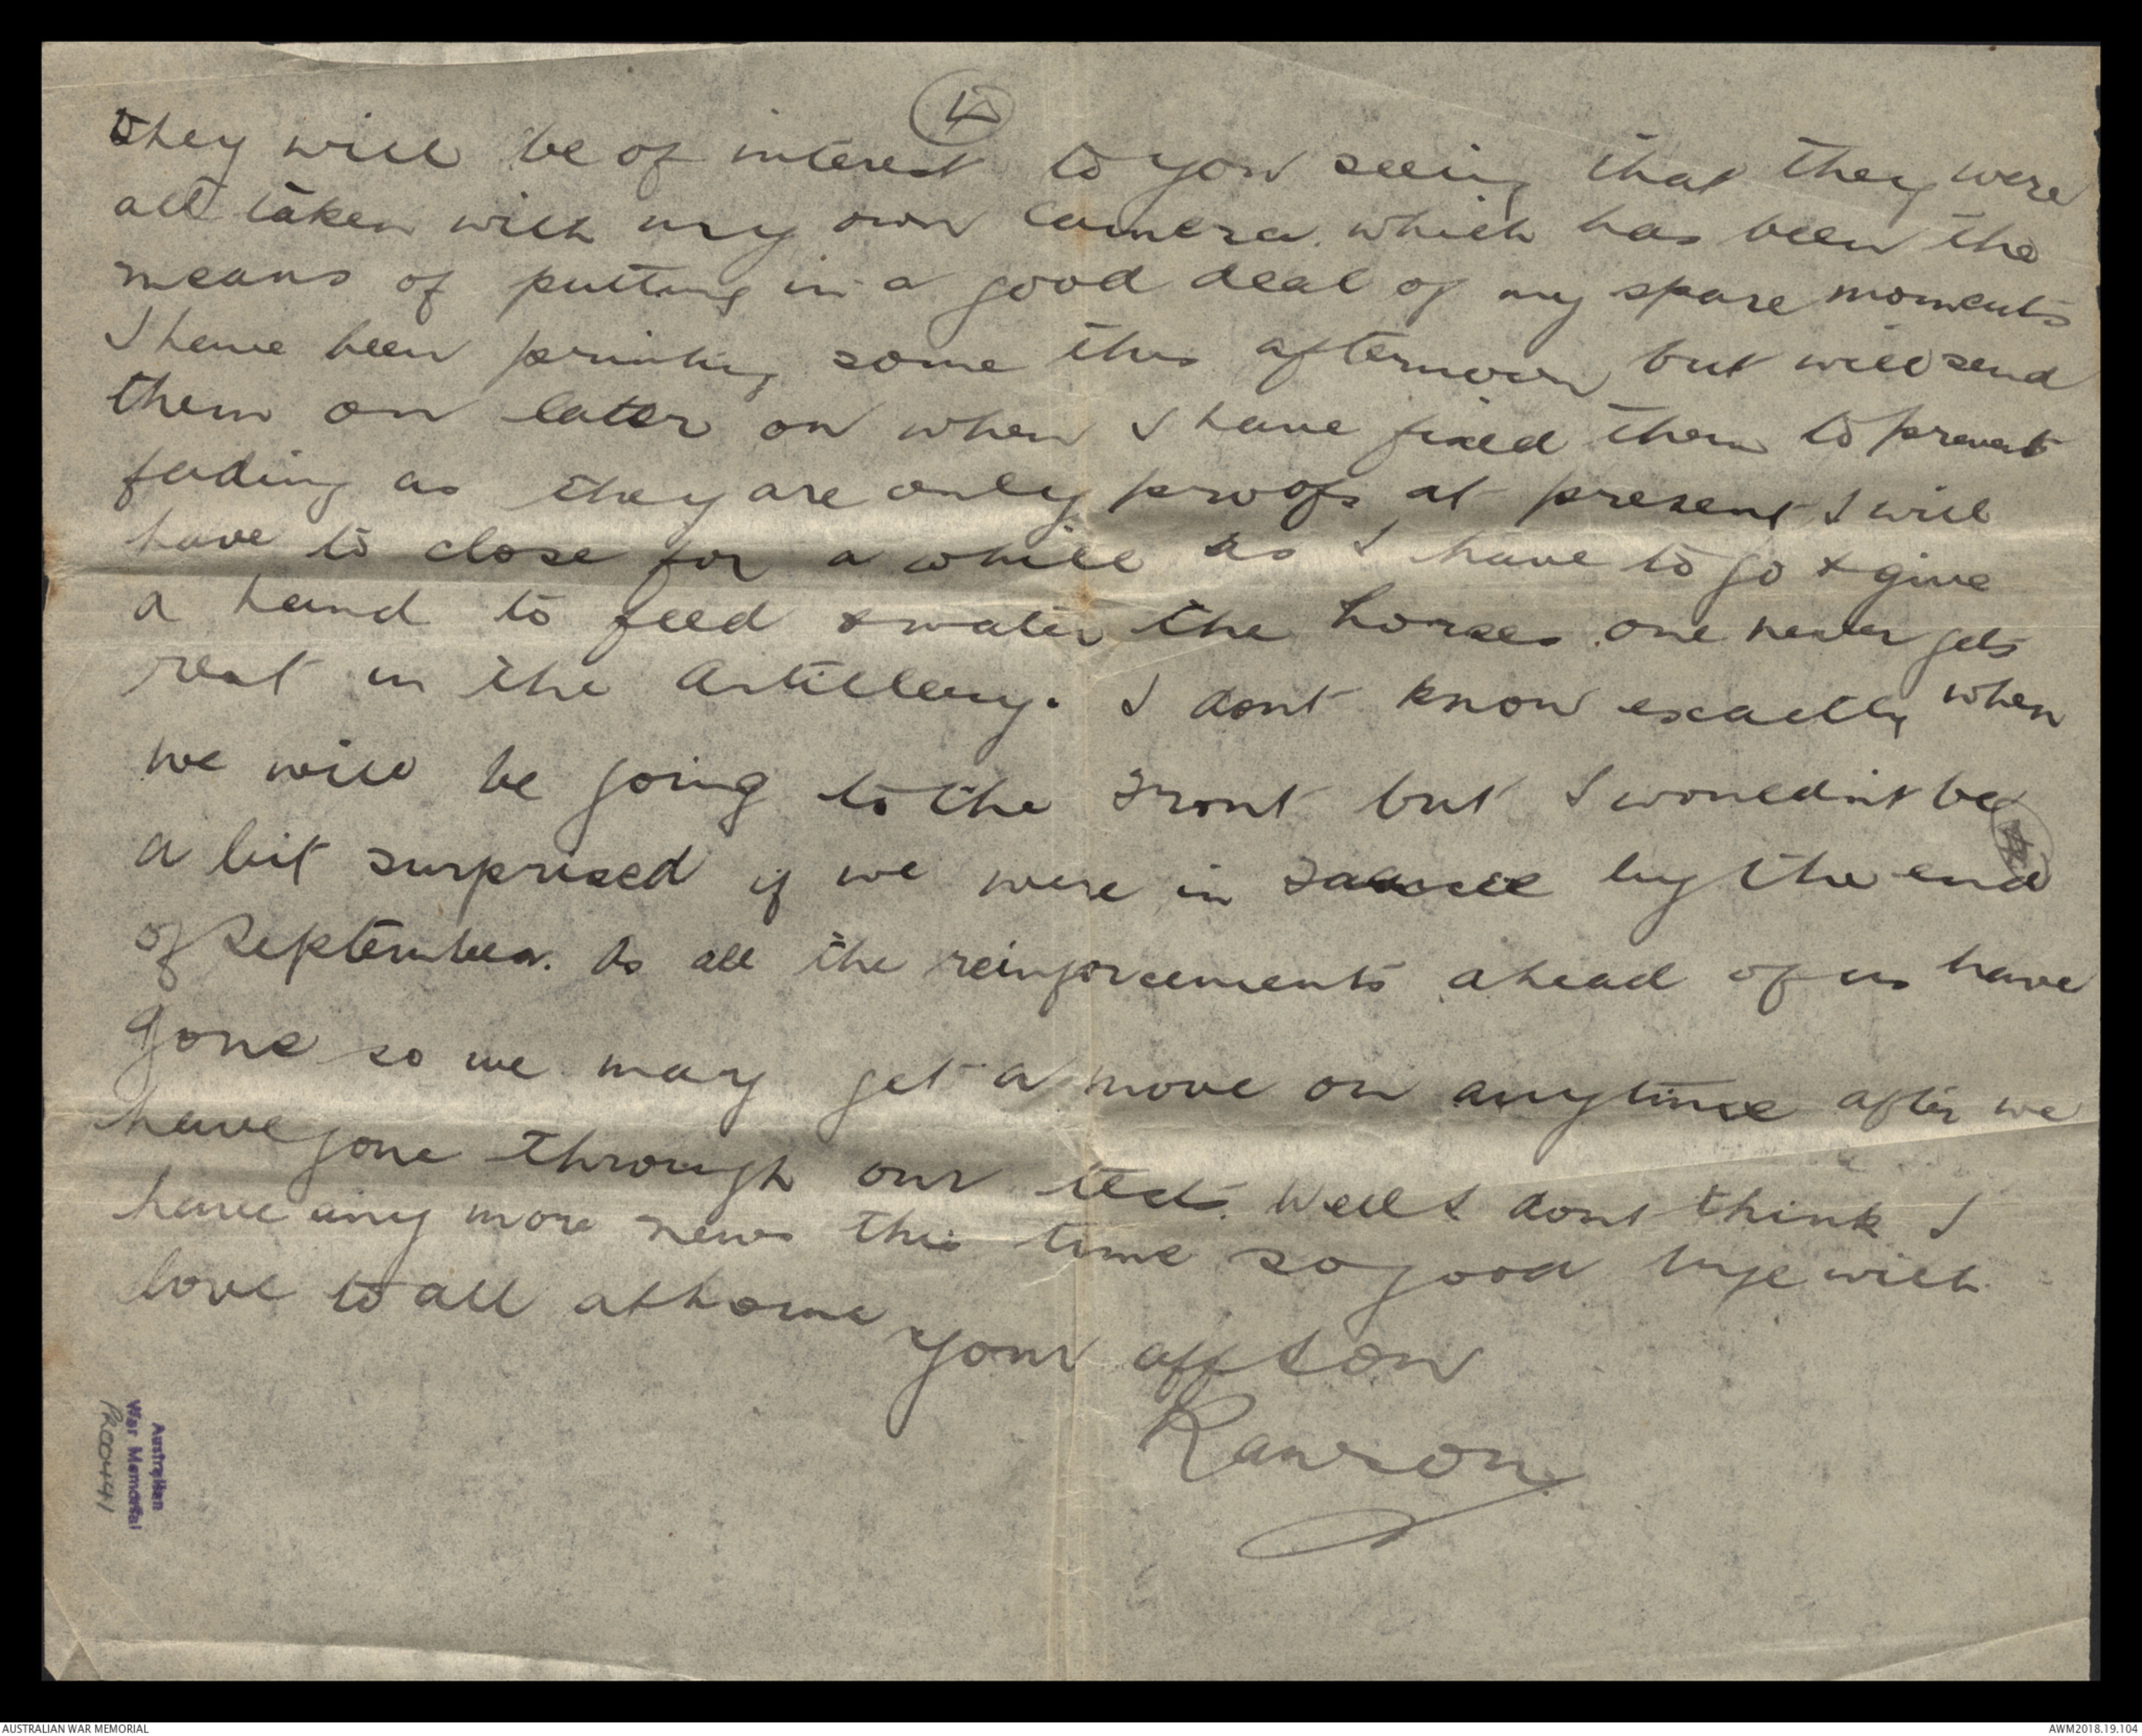 4
they will be of interest to you seeing that they were
all taken with my own Camera. which has been the
means of putting in a good deal of my spare moments
I have been printing some this afternoon but will send
them on later on when I have fixed them to prevent
fading as they are only proofs at present I will
have to close for a while as I have to go & give
a hand to feed & water the horses. one never gets
rest in the Artillery. I dont know exactly when
we will be going to the Front but I wouldint be
a bit surprised if we were in by the end
of September. As all the reinforcements ahead of us have
gone so we may get a move on anytime after we
have gone through our tests. Well I dont think I
have any more news this time so good bye with
love to all at home
Your aff son
Rawson
Australian
War Memorial
PR00441
AUSTRALIAN WAR MEMORIAL
AWM2018.19.104